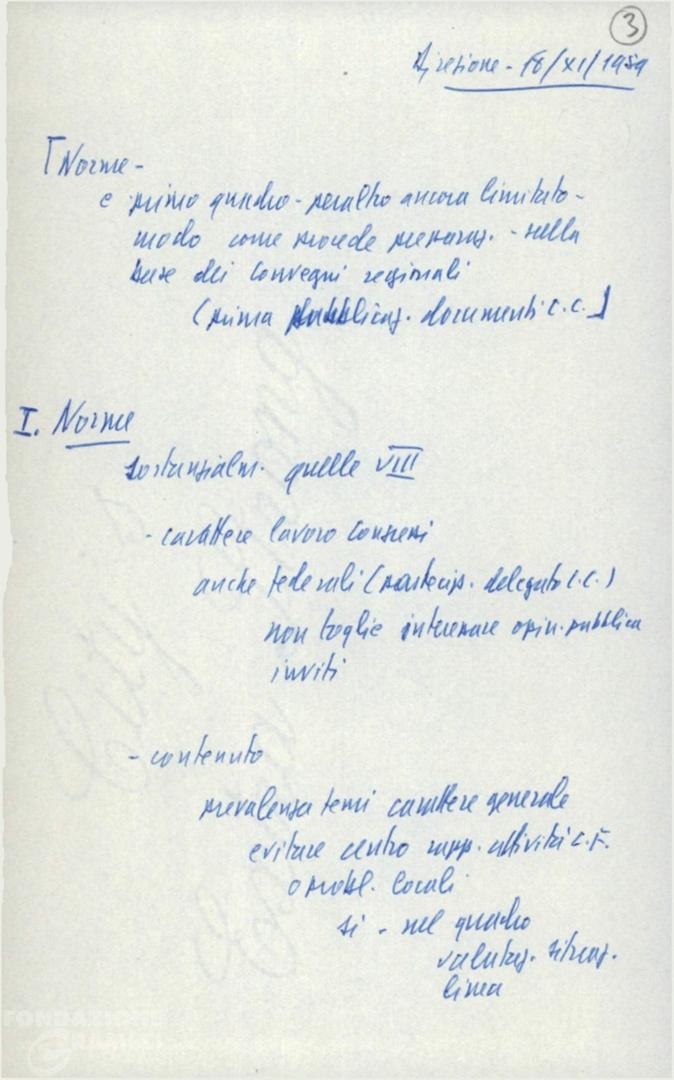 3
Direzione - 18/XI/1959
[Norme -
e primo quadro - peraltro ancora limitato -
modo come procede preparaz. - sulla
base dei convegni regionali
(prima pubblicaz. documenti C.C.]
I. Norme
sostanzialm. quelle VIII
- carattere lavoro congressi
anche federali (partecip. delegato C.C.)
non toglie interessare opin. pubblica
inviti
- contenuto
prevalenza temi carattere generale
evitare centro rapp. attività C.F.
o probl. locali
si - nel quadro
valutaz. situaz.
linea
FONDAZIONE
GRAMSCI